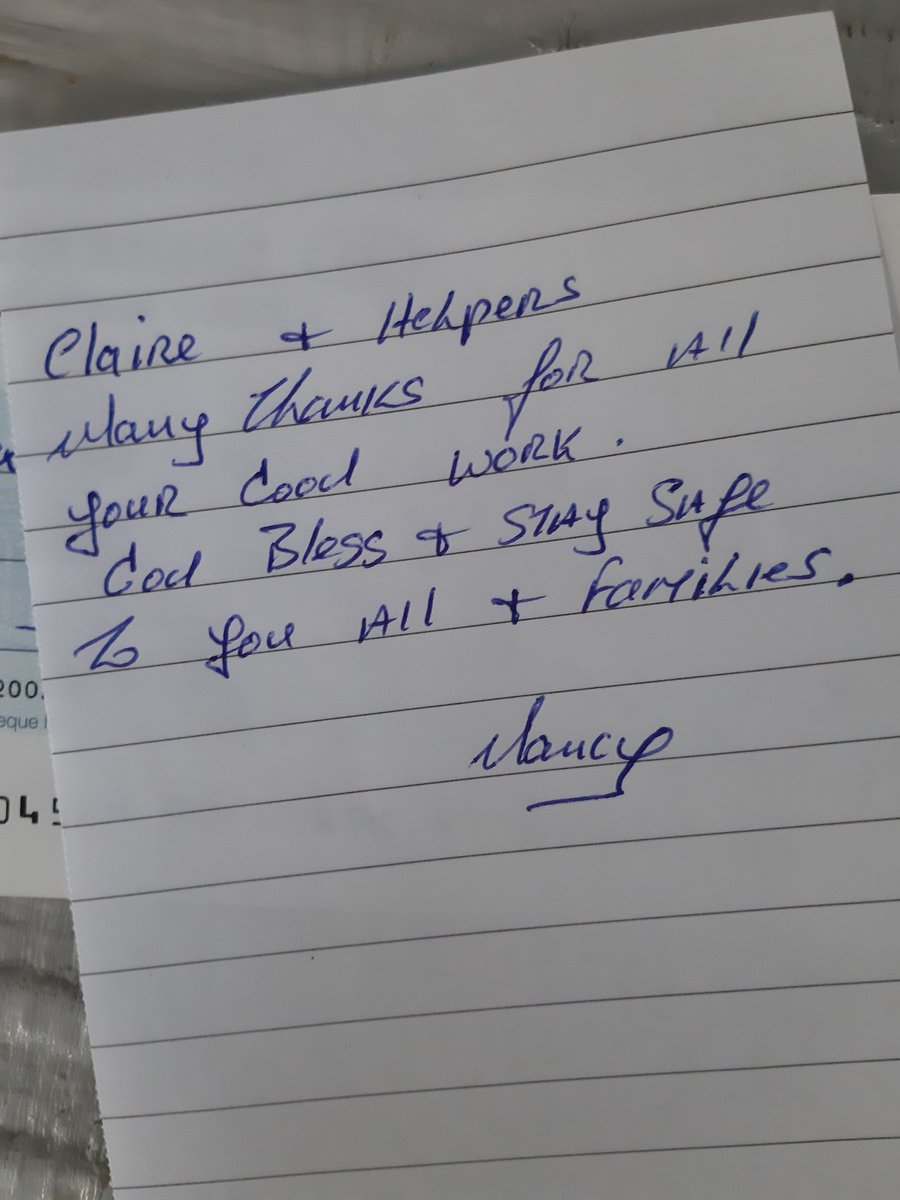 Claire + Helpers
Many thanks for All
your Good work.
God Bless + Stay Safe
To you All + families.
Nancy
200.
eque
04